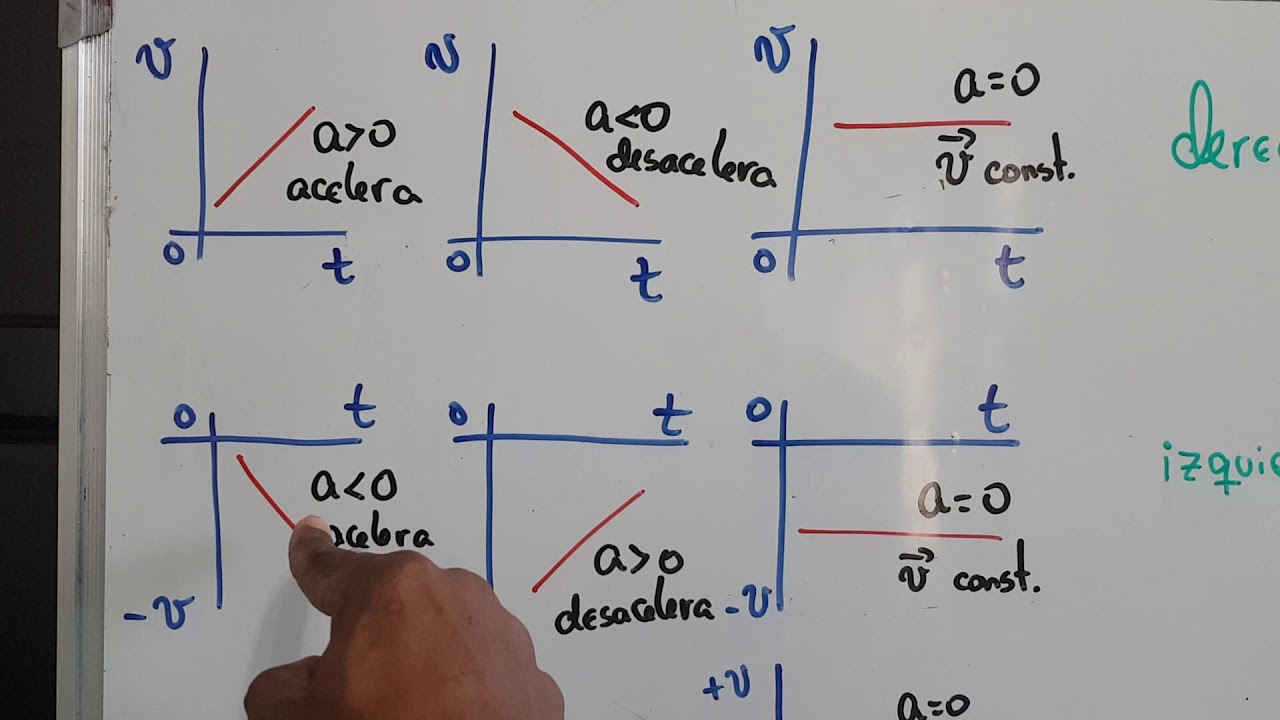 v
a>0
acelera
0
t
v
a<0
desacelera
0
t
v
a=0
v⃗ const.
0
t
0
t
a<0
-v
0
t
a>0
desacelera
0
t
a=0
v⃗ const.
-v
+v
a=0